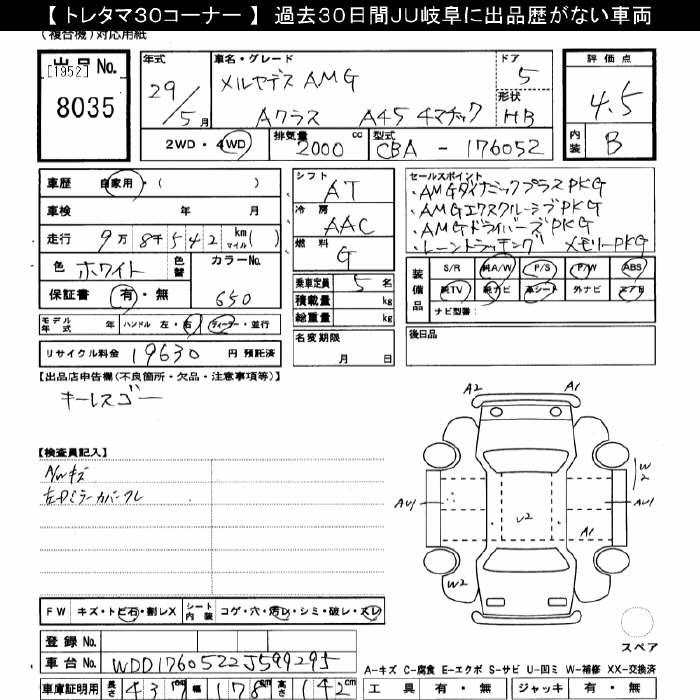 【 トレタマ30コーナー 】 過去30日間JU岐阜に出品歴がない車両
(複合機)対応用紙
出品No.
[1952]
8035
年式 29/5月
車名・グレード メルセデス AMG
Aクラス A45 4マチック
ドア 5
形状 HB
評価点 4.5
内装 B
2WD・4WD 排気量 2000 cc 型式 CBA - 176052
車歴 自家用・( )
車検 年 月
走行 9万 8千 5 4 2 km マイル( )
色 ホワイト 色替 カラーNo. 650
保証書 有・無
シフト AT
冷房 AAC
燃料 G
乗車定員 5 名
積載量 kg
総重量 kg
名変期限 月 日
セールスポイント
・AMGダイナミックプラスPKG
・AMGエクスクルーシブPKG
・AMGドライバーズPKG
・レーントラッキング メモリーPKG
装備品 S/R 純A/W P/S P/W ABS
純TV 純ナビ 革シート 外ナビ エアB
ナビ型番:
モデル年式 年 ハンドル 左・右 ディーラー・並行
リサイクル料金 19630 円 預託済
後日品
【出品店申告欄(不良箇所・欠品・注意事項等)】
キーレスゴー
【検査員記入】
A/Wキズ
左ドミラーカバークレ
A2 A1
W2
AU1 AU1
U2
A1
W2
スペア
FW キズ・トビ石・割レX シート内装 コゲ・穴・汚レ・シミ・破レ・スレ
登録No.
車台No. WDD1760522J599295
A-キズ C-腐食 E-エクボ S-サビ U-凹ミ W-補修 XX-交換済
車庫証明用 長さ 437 幅 178cm 高さ 142cm
工具 有・無 ジャッキ 有・無